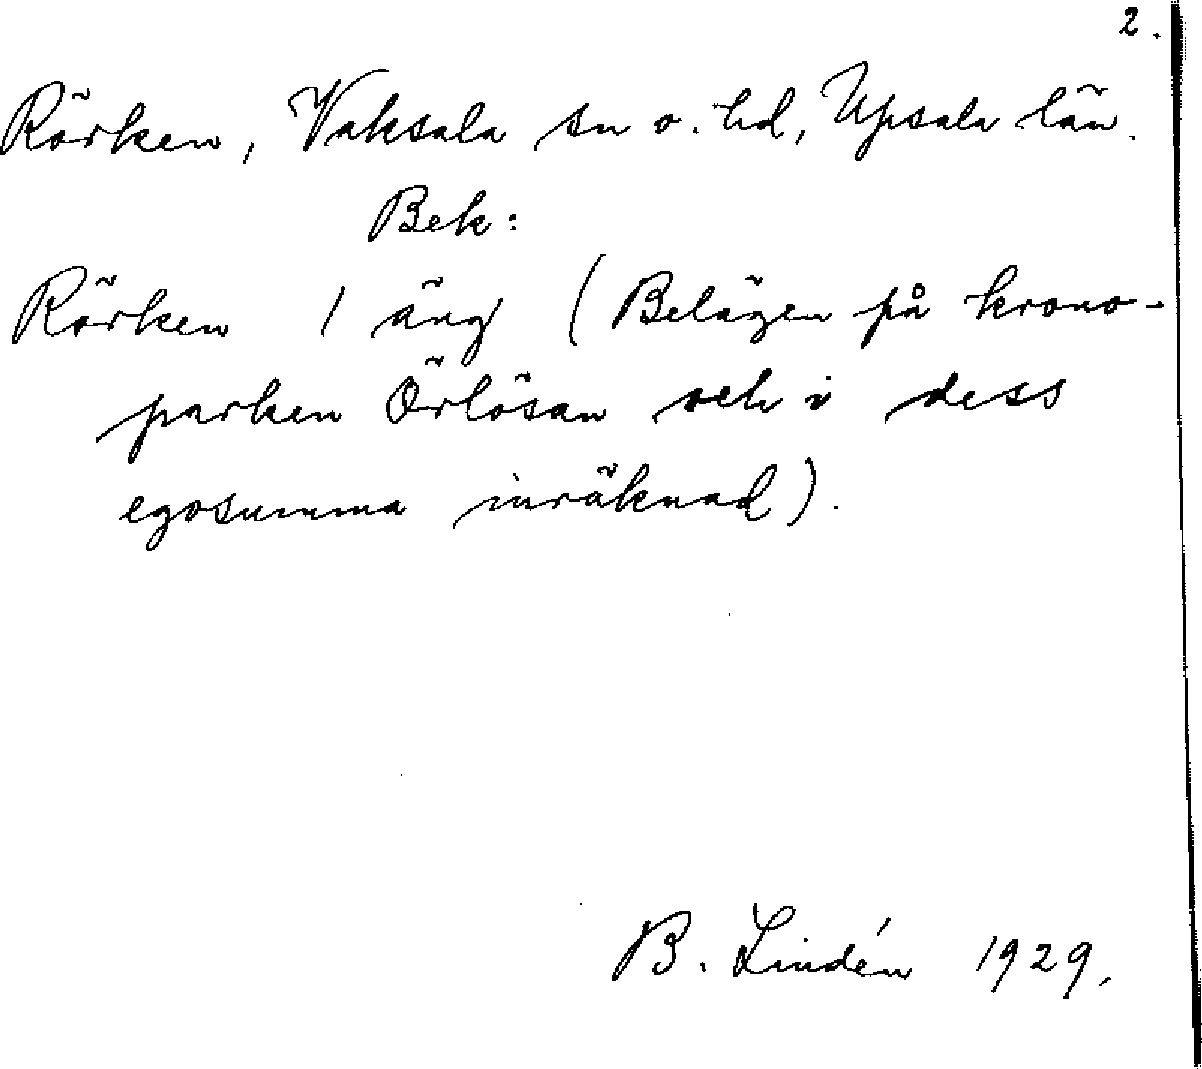 2.
Rörken, Vaksala sn o. hd, Upsala län.
Bek:
Rörken 1 äng (Belägen på krono-
parken Örlösan och i dess
egosumma inräknad).
B. Lindén 1929.